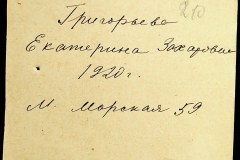 210
Григорьева
Екатерина Захаровна
1920 г.
М. Морская 59